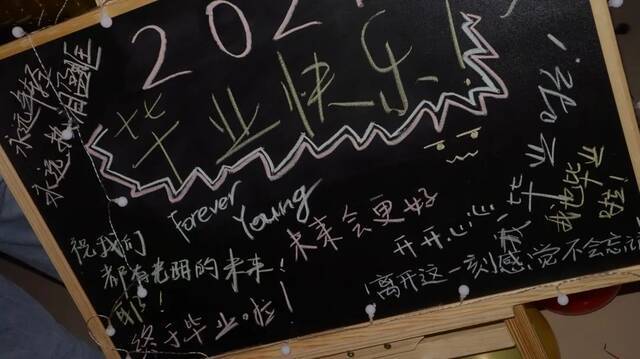 202
毕业快乐!
永远年轻
永远热泪盈眶
Forever
Young
未来会更好
祝我们
都有光明的未来!
耶!
终于毕业啦!
开开心心
毕业
我也毕业
离开这一刻感觉不会忘记